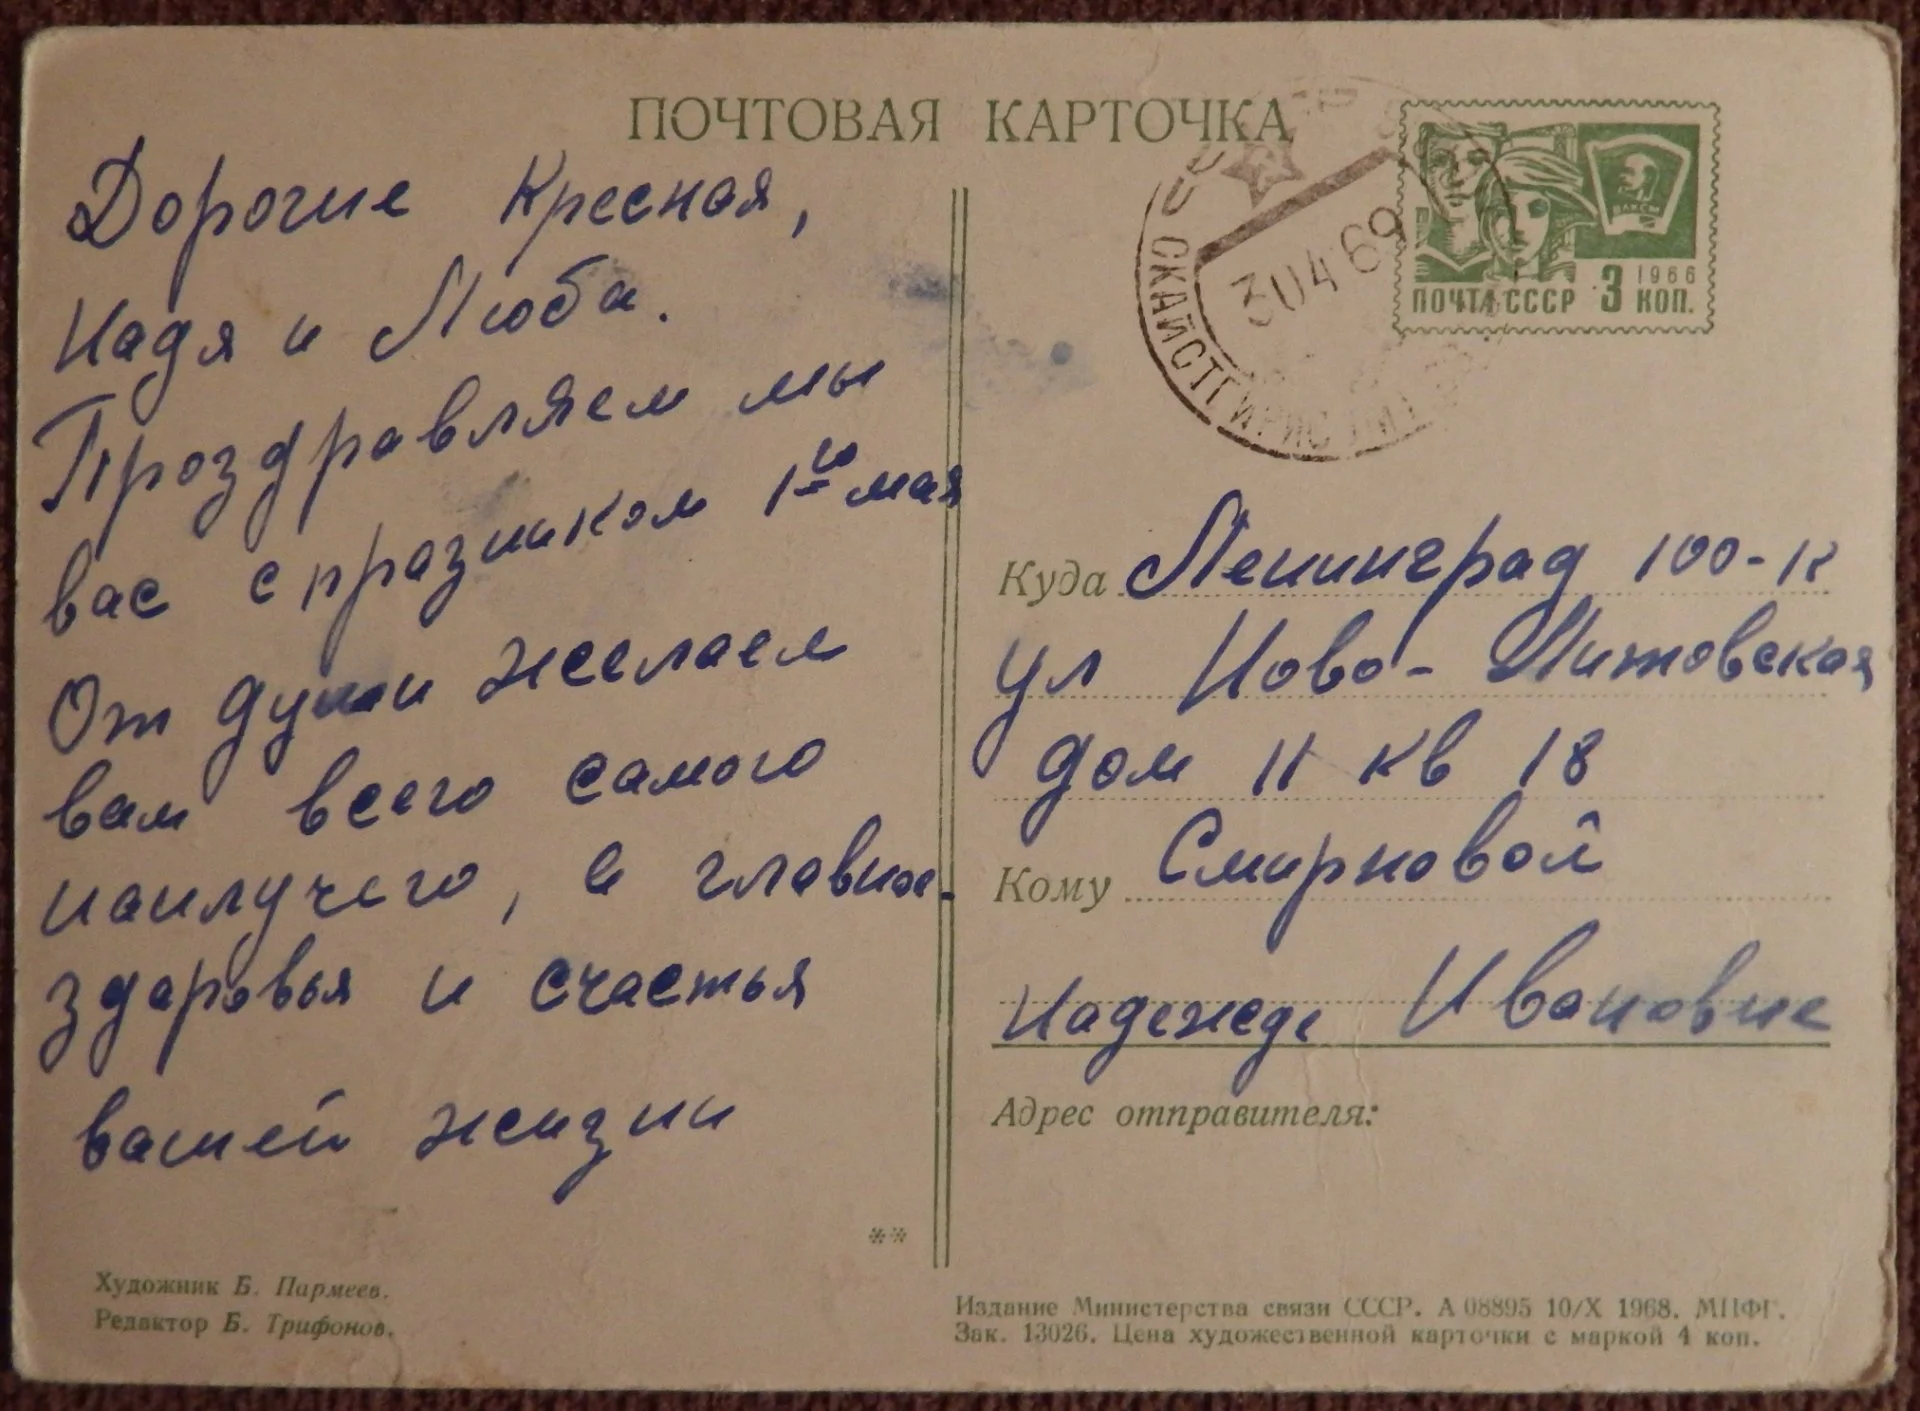 ПОЧТОВАЯ КАРТОЧКА
Дорогие Кресная,
Надя и Люба.
Проздравляем мы
вас с празником 1го мая
От души желаем
вам всего самого
наилучего, а главное-
здоровья и счастья
вашей жизни
**
Художник Б. Пармеев.
Редактор Б. Трифонов.
СКАЙСТГИРИС ЛИТ
30 4 69
ВЛКСМ
1966
ПОЧТА СССР 3 КОП.
Куда Ленинград 100-К
ул Ново-Литовская
дом 11 кв 18
Кому Смирновой
Надежде Ивановне
Адрес отправителя:
Издание Министерства связи СССР. А 08895 10/X 1968. МПФГ.
Зак. 13026. Цена художественной карточки с маркой 4 коп.